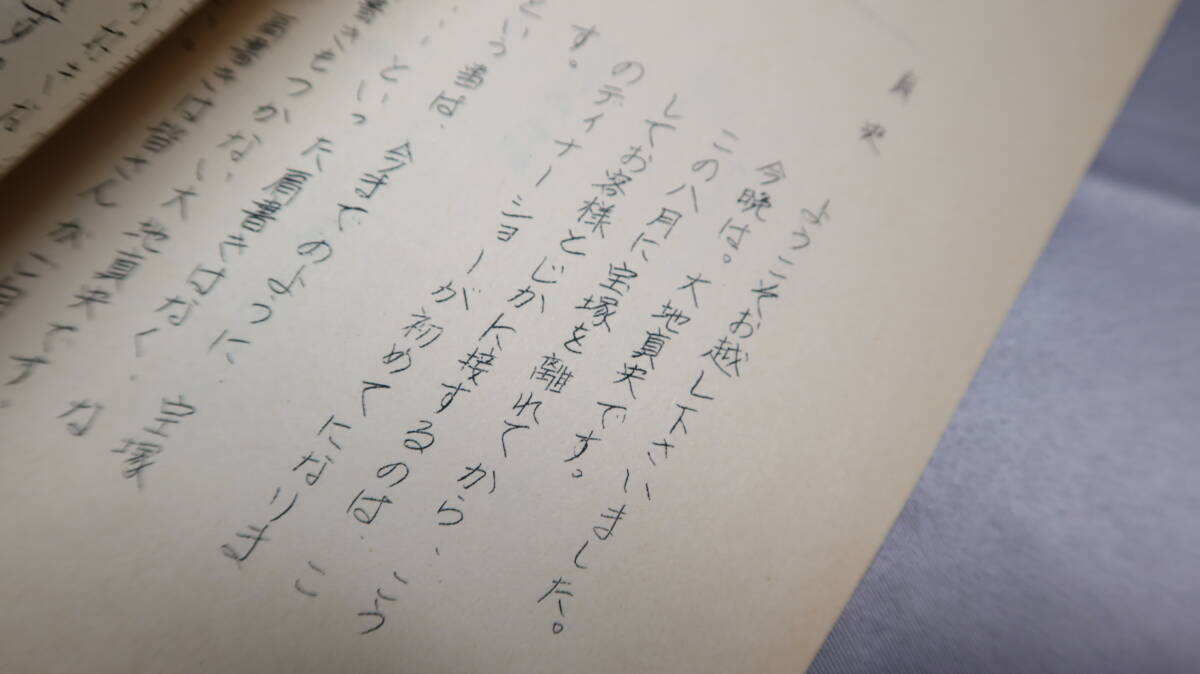 真央
ようこそお越し下さいました。
今晩は。大地真央です。
この八月に宝塚を離れてから、こう
してお客様とじかに接するのは、こ
のディナーショーが初めてになりま
す。
という事は、今までのように
といった肩書きはなく、宝塚
つかない大地真央です。な
肩書きは皆さんがご自